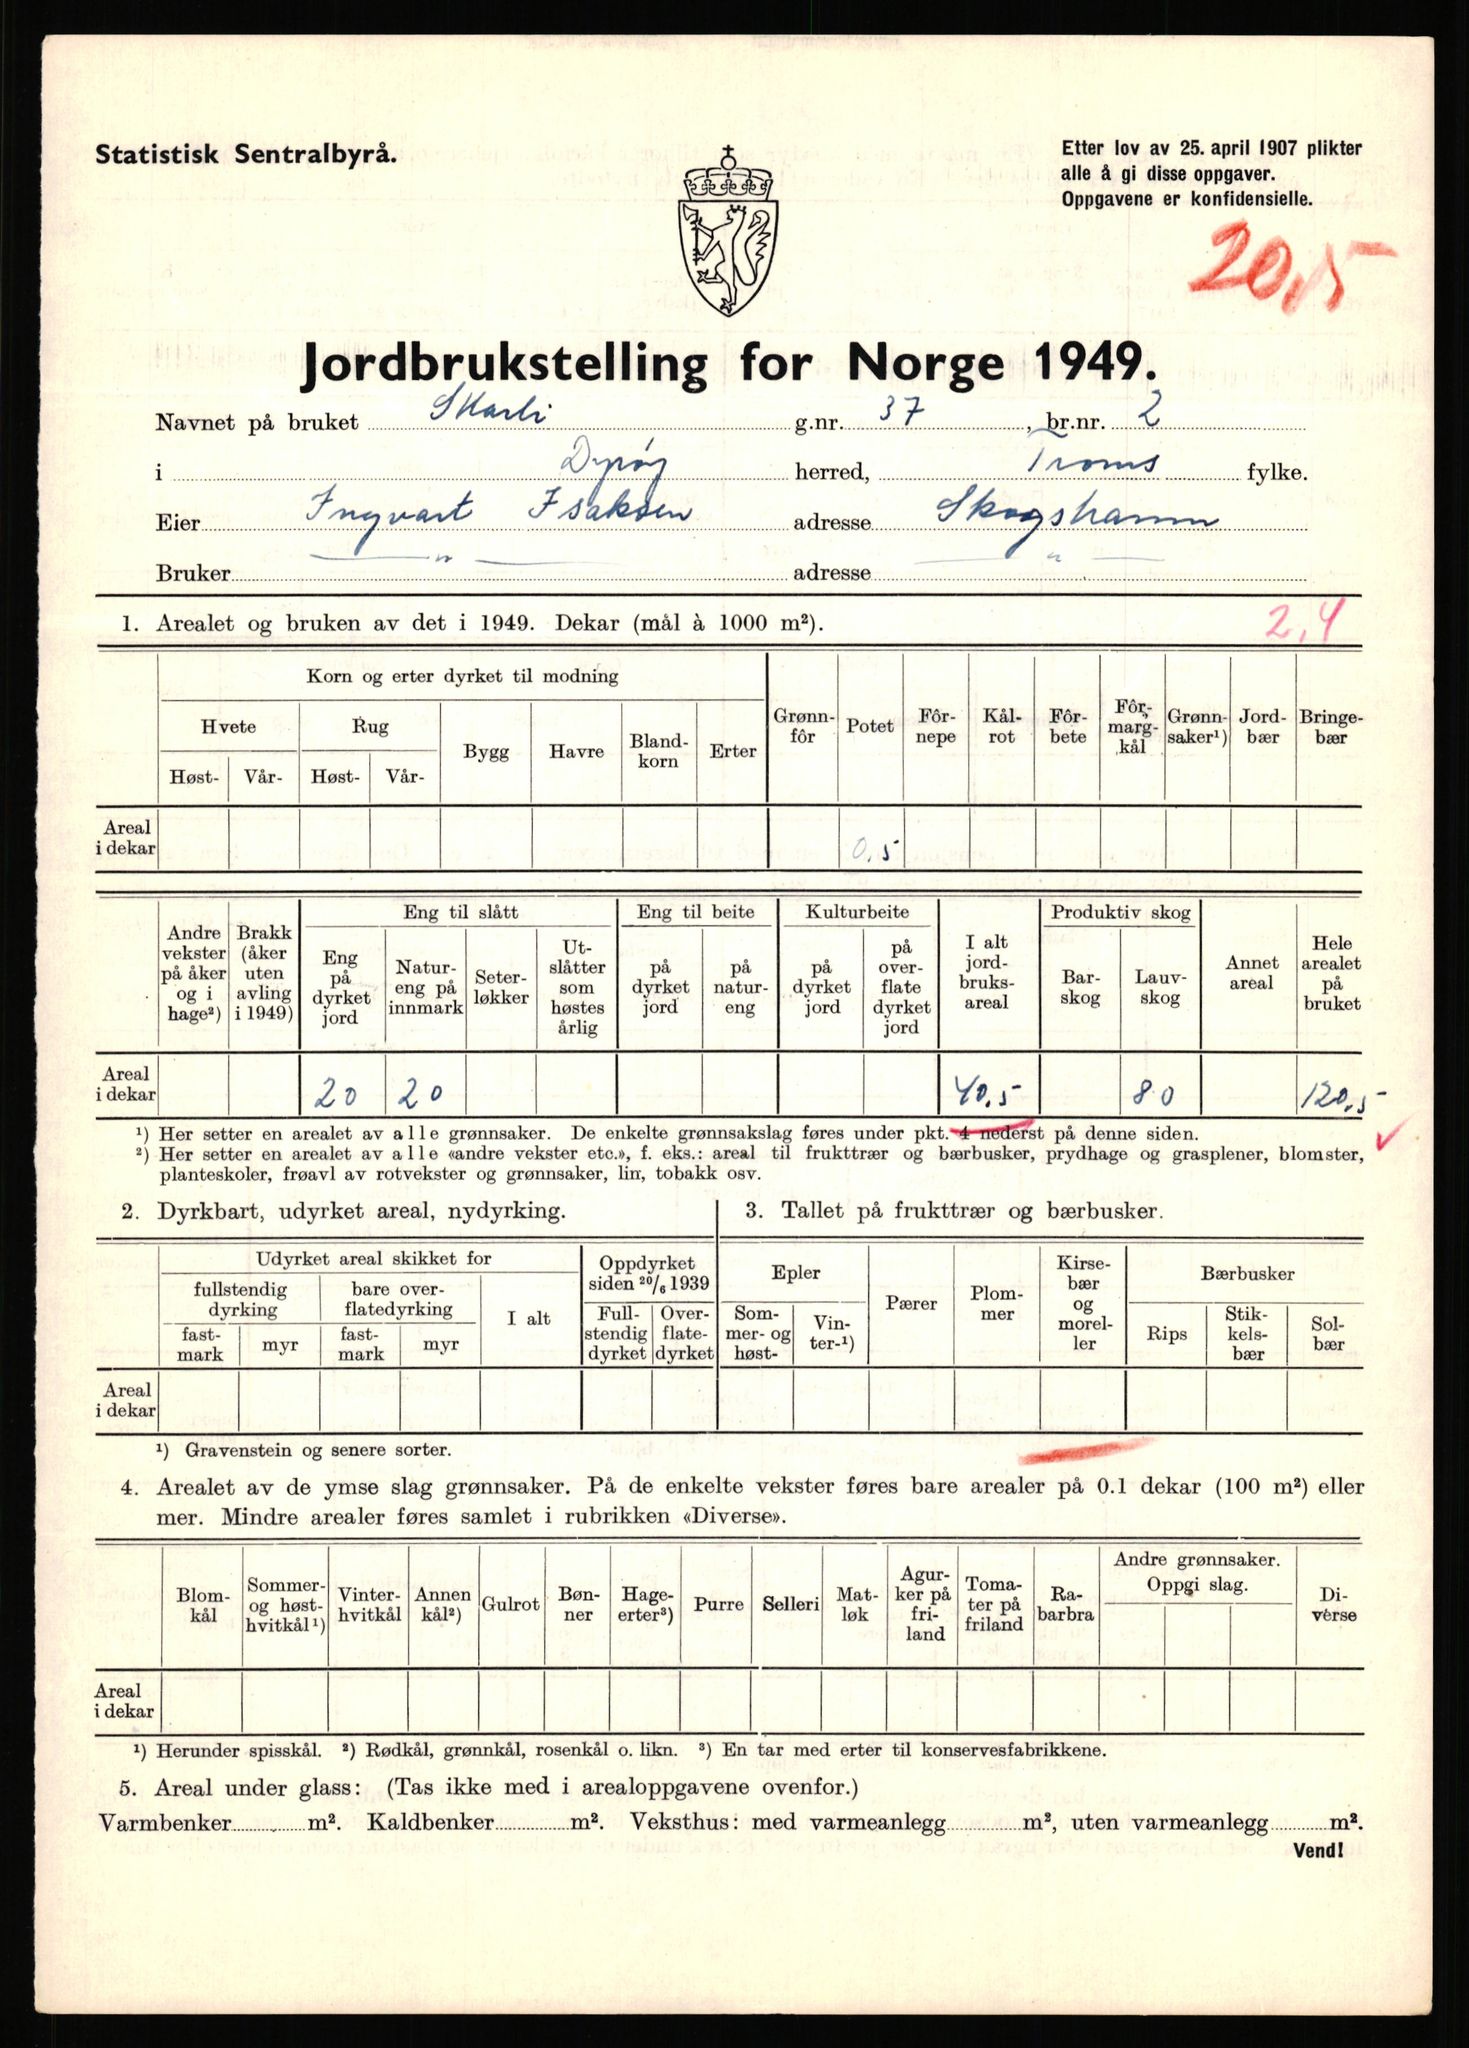 Statistisk Sentralbyrå.
Etter lov av 25. april 1907 plikter
alle å gi disse oppgaver.
Oppgavene er konfidensielle.
20,5
Jordbrukstelling for Norge 1949.
Navnet på bruket Skarli g.nr. 37, br.nr. 2
i Dyrøy herred, Troms fylke.
Eier Ingvart Isaksen adresse Skogshamn
Bruker — „ — adresse — „ —
1. Arealet og bruken av det i 1949. Dekar (mål à 1000 m²).
2,4
Korn og erter dyrket til modning
Hvete Rug Bygg Havre Bland-korn Erter Grønn-fôr Potet Fôr-nepe Kål-rot Fôr-bete Fôr-marg-kål Grønn-saker¹) Jord-bær Bringe-bær
Høst- Vår- Høst- Vår-
Areal
i dekar 0,5
Andre vekster på åker og i hage²) Brakk (åker uten avling i 1949) Eng til slått Eng til beite Kulturbeite I alt jord-bruks-areal Produktiv skog Annet areal Hele arealet på bruket
Eng på dyrket jord Natur-eng på innmark Seter-løkker Ut-slåtter som høstes årlig på dyrket jord på natur-eng på dyrket jord på over-flate dyrket jord Bar-skog Lauv-skog
Areal
i dekar 20 20 40,5 80 120,5
¹) Her setter en arealet av alle grønnsaker. De enkelte grønnsakslag føres under pkt. 4 nederst på denne siden.
²) Her setter en arealet av alle «andre vekster etc.», f. eks.: areal til frukttrær og bærbusker, prydhage og grasplener, blomster,
planteskoler, frøavl av rotvekster og grønnsaker, lin, tobakk osv.
2. Dyrkbart, udyrket areal, nydyrking.
Udyrket areal skikket for Oppdyrket siden 20/6 1939
fullstendig dyrking bare over-flatedyrking I alt Full-stendig dyrket Over-flate-dyrket
fast-mark myr fast-mark myr
Areal
i dekar
3. Tallet på frukttrær og bærbusker.
Epler Pærer Plom-mer Kirse-bær og morel-ler Bærbusker
Som-mer- og høst- Vin-ter-¹) Rips Stik-kels-bær Sol-bær
¹) Gravenstein og senere sorter.
4. Arealet av de ymse slag grønnsaker. På de enkelte vekster føres bare arealer på 0.1 dekar (100 m²) eller
mer. Mindre arealer føres samlet i rubrikken «Diverse».
Blom-kål Sommer- og høst-hvitkål¹) Vinter-hvitkål Annen kål²) Gulrot Bøn-ner Hage-erter³) Purre Selleri Mat-løk Agur-ker på fri-land Toma-ter på friland Ra-barbra Andre grønnsaker. Oppgi slag. Di-verse
Areal
i dekar
¹) Herunder spisskål. ²) Rødkål, grønnkål, rosenkål o. likn. ³) En tar med erter til konservesfabrikkene.
5. Areal under glass: (Tas ikke med i arealoppgavene ovenfor.)
Varmbenker m². Kaldbenker m². Veksthus: med varmeanlegg m², uten varmeanlegg m².
Vend!